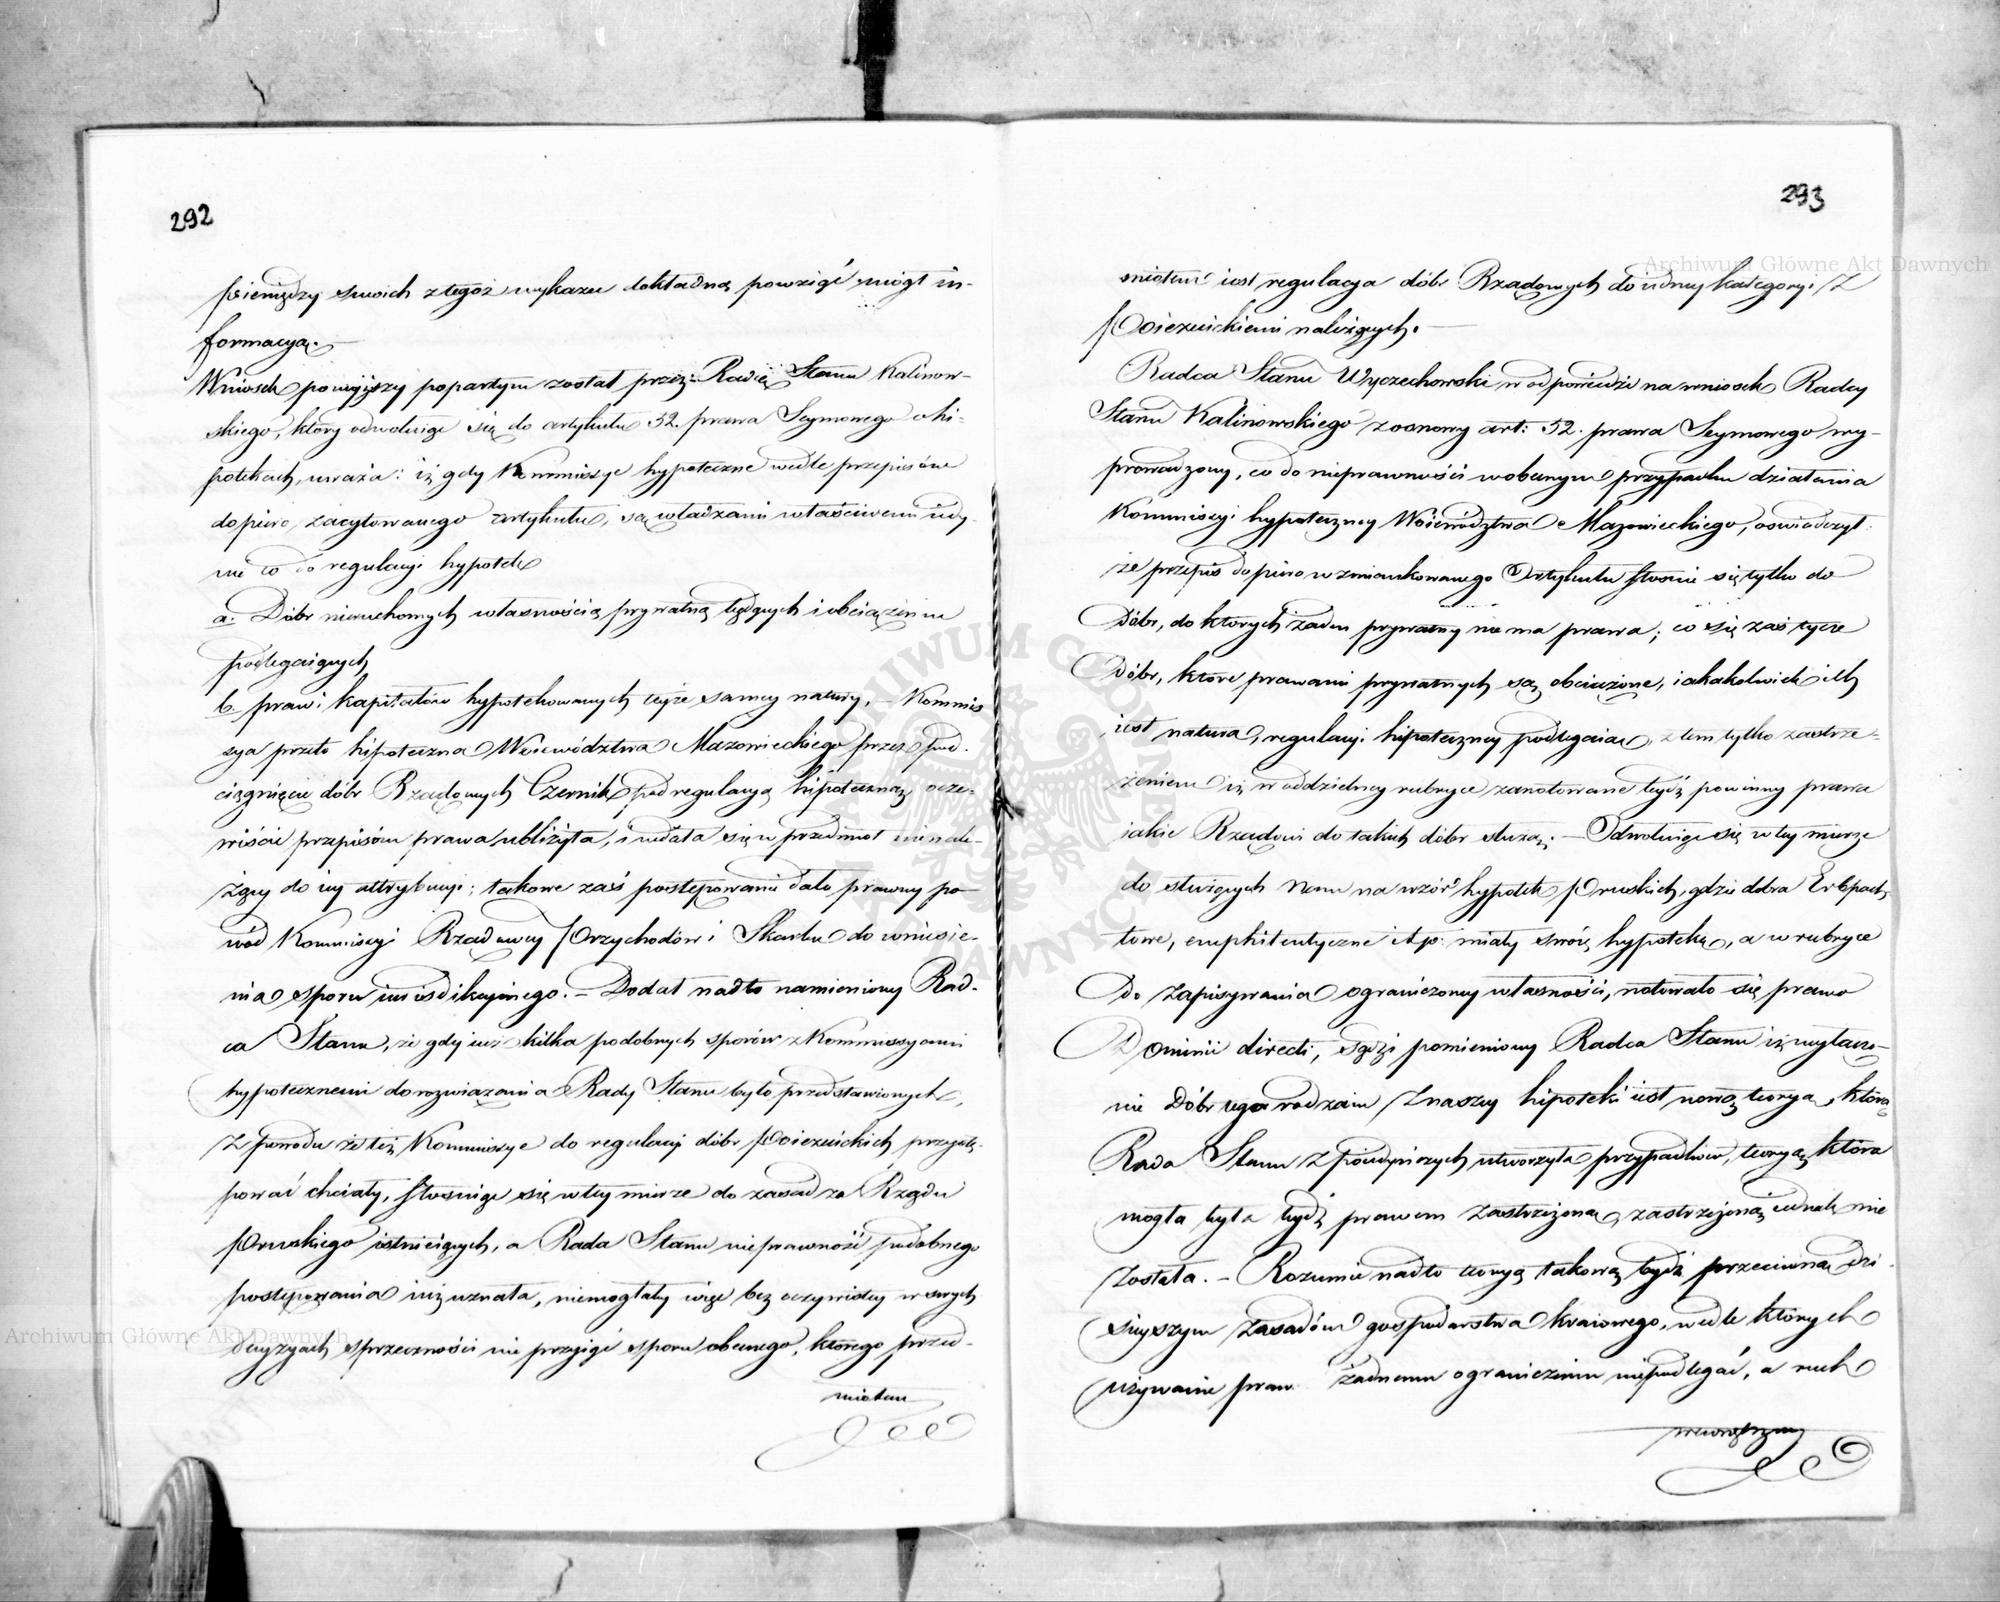 292
pieniędzy swoich z tegoż wykazu dokładną powziąć mógł in-
formacyą.
Wniosek powyższy popartym został przez Radcę Stanu Kalinow-
skiego, który odwołuiąc się do artykułu 52. prawa Seymowego o hi-
potekach, uważa: iż gdy Kommissye hypoteczne wedle przepisów
dopiero zacytowanego artykułu, są władzami właściwemi iedy-
nie co do regulacyi hypotek
a. Dóbr nieruchomych własnością prywatną będących i obciążeniu
podlegaiących
b. praw i kapitałów hypotekowanych teyże samey natury, – Kommis
sya przeto hipoteczna Woiewództwa Mazowieckiego przez pod-
ciągnięcie dóbr Rządowych Czernik pod regulacyą hipoteczną, oczy-
wiście przepisom prawa ubliżyła, i wdała się w przedmiot nienale-
żący do iey attrybucyi; takowe zaś postępowanie dało prawny po-
wód Kommissyi Rządowey Przychodów i Skarbu do wniesie-
nia sporu iurisdikcyinego. – Dodał nadto namieniony Rad-
ca Stanu, że gdy iuż kilka podobnych sporów z Kommissyami
hypotecznemi do rozwiązania Rady Stanu było przedstawionych,
z powodu że też Kommissye do regulacyi dóbr Poiezuickich przystę-
pować chciały, stosuiąc się w tey mierze do zasad za Rządu
Pruskiego istnieiących, a Rada Stanu nieprawność podobnego
postępowania iuż uznała, niemogłaby więc bez oczywistey w swych
decyzyach sprzeczności nie przyiąć sporu obecnego, którego przed-
miotem
293
miotem iest regulacya dóbr Rządowych do iedney kategoryi z
Poiezuickiemi należących. –
Radca Stanu Wyczechowski w odpowiedzi na wniosek Radcy
Stanu Kalinowskiego z osnowy art: 52. prawa Seymowego wy-
prowadzony, co do nieprawności w obecnym przypadku działania
Kommissyi hypoteczney Woiewództwa Mazowieckiego, oświadczył
że przepis dopiero wzmiankowanego Artykułu stosuie się tylko do
Dóbr, do których żaden prywatny nie ma prawa; co się zaś tycze
Dóbr, które prawami prywatnych są obciążone, iakakolwiek ich
iest natura, regulacyi hipoteczney podlegaią, z tem tylko zastrze-
żeniem iż w oddzielney rubryce zanotowane bydź powinny prawa
iakie Rządowi do takich dóbr służą; – Odwołuiąc się w tey mierze
do służących Nam na wzór hypotek Pruskich, gdzie dobra Erbpach-
towe, emphiteutyczne i t. p: miały swoię hypotekę, a w rubryce
Do zapisywania ograniczoney własności, notowało się prawo
Dominii directi, sądzi pomieniony Radca Stanu iż wyłącze-
nie Dóbr tego rodzaiu z naszey hipoteki iest nową teoryą, którą
Rada Stanu z poiedyńczych utworzyła przypadków, teoryą, która
mogła była bydź prawem zastrzeżona, zastrzeżoną iednak nie
została. – Rozumie nadto teoryą takową bydź przeciwną dzi-
sieyszym zasadom gospodarstwa kraiowego, wedle których
używanie praw żadnemu ograniczeniu niepodlegać, a ruch
wewnętrzny
Archiwum Główne Akt Dawnych
Archiwum Główne Akt Dawnych
ARCHIWUM GŁÓWNE AKT DAWNYCH